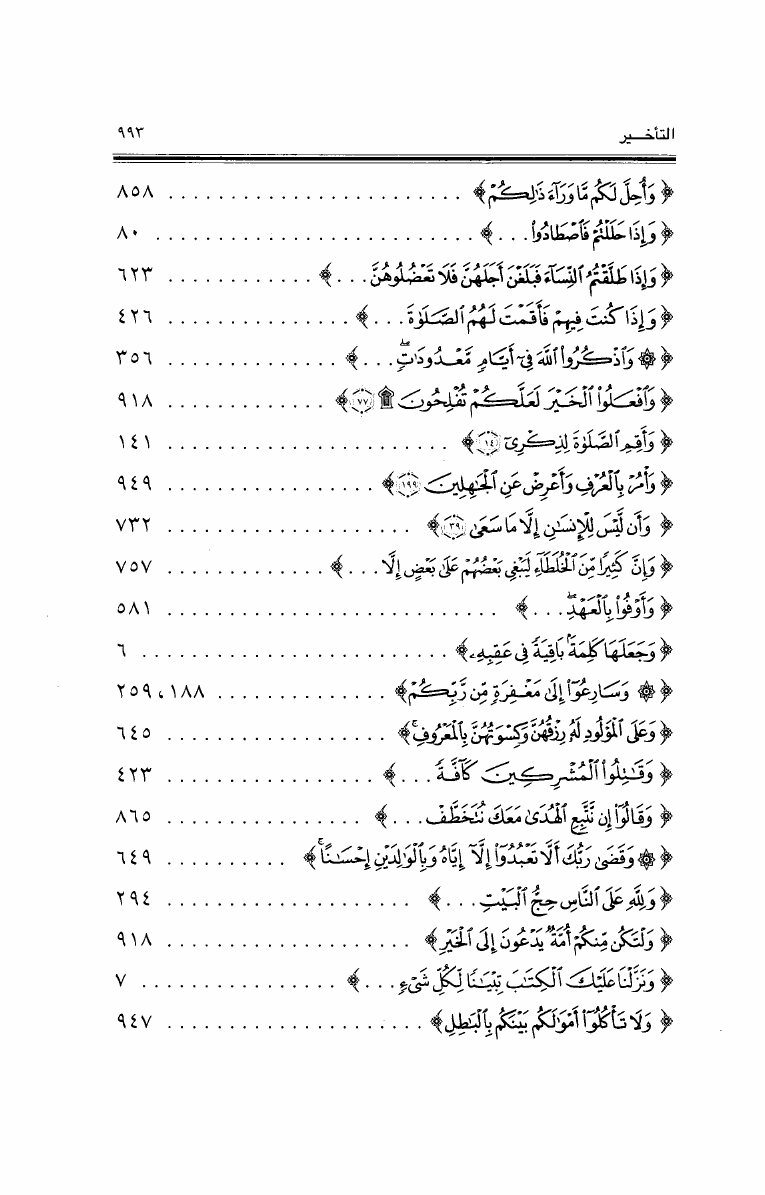 التأخـــير ٩٩٣
﴿ وَأُحِلَّ لَكُم مَّا وَرَآءَ ذَٰلِكُمْ ﴾ . . . . . . . . . . . . . . . . . . . . . . . . ٨٥٨
﴿ وَإِذَا حَلَلْتُمْ فَٱصْطَادُوا۟ . . . ﴾ . . . . . . . . . . . . . . . . . . . . . . . . . . ٨٠
﴿ وَإِذَا طَلَّقْتُمُ ٱلنِّسَآءَ فَبَلَغْنَ أَجَلَهُنَّ فَلَا تَعْضُلُوهُنَّ . . . ﴾ . . . . . . . . . . . . ٦٢٣
﴿ وَإِذَا كُنتَ فِيهِمْ فَأَقَمْتَ لَهُمُ ٱلصَّلَوٰةَ . . . ﴾ . . . . . . . . . . . . . . . ٤٢٦
﴿ ۞ وَٱذْكُرُوا۟ ٱللَّهَ فِىٓ أَيَّامٍ مَّعْدُودَٰتٍ ۚ . . . ﴾ . . . . . . . . . . . . . . ٣٥٦
﴿ وَٱفْعَلُوا۟ ٱلْخَيْرَ لَعَلَّكُمْ تُفْلِحُونَ ۩ ٧٧ ﴾ . . . . . . . . . . . . . ٩١٨
﴿ وَأَقِمِ ٱلصَّلَوٰةَ لِذِكْرِىٓ ١٤ ﴾ . . . . . . . . . . . . . . . . . . . . . . . ١٤١
﴿ وَأْمُرْ بِٱلْعُرْفِ وَأَعْرِضْ عَنِ ٱلْجَٰهِلِينَ ١٩٩ ﴾ . . . . . . . . . . . . . . . . . ٩٤٩
﴿ وَأَن لَّيْسَ لِلْإِنسَٰنِ إِلَّا مَا سَعَىٰ ٣٩ ﴾ . . . . . . . . . . . . . . . . . . . . ٧٣٢
﴿ وَإِنَّ كَثِيرًا مِّنَ ٱلْخُلَطَآءِ لَيَبْغِى بَعْضُهُمْ عَلَىٰ بَعْضٍ إِلَّا . . . ﴾ . . . . . . . . . . . . . ٧٥٧
﴿ وَأَوْفُوا۟ بِٱلْعَهْدِ ۖ . . . ﴾ . . . . . . . . . . . . . . . . . . . . . . . . . . . ٥٨١
﴿ وَجَعَلَهَا كَلِمَةًۢ بَاقِيَةً فِى عَقِبِهِۦ ﴾ . . . . . . . . . . . . . . . . . . . . . . . . . ٦
﴿ ۞ وَسَارِعُوٓا۟ إِلَىٰ مَغْفِرَةٍ مِّن رَّبِّكُمْ ﴾ . . . . . . . . . . . . . . ١٨٨ ، ٢٥٩
﴿ وَعَلَى ٱلْمَوْلُودِ لَهُۥ رِزْقُهُنَّ وَكِسْوَتُهُنَّ بِٱلْمَعْرُوفِ ۚ ﴾ . . . . . . . . . . . . . . . . . . ٦٤٥
﴿ وَقَٰتِلُوا۟ ٱلْمُشْرِكِينَ كَآفَّةً . . . ﴾ . . . . . . . . . . . . . . . . . ٤٢٣
﴿ وَقَالُوٓا۟ إِن نَّتَّبِعِ ٱلْهُدَىٰ مَعَكَ نُتَخَطَّفْ . . . ﴾ . . . . . . . . . . . . . . . . ٨٦٥
﴿ ۞ وَقَضَىٰ رَبُّكَ أَلَّا تَعْبُدُوٓا۟ إِلَّآ إِيَّاهُ وَبِٱلْوَٰلِدَيْنِ إِحْسَٰنًا ۚ ﴾ . . . . . . . . . . ٦٤٩
﴿ وَلِلَّهِ عَلَى ٱلنَّاسِ حِجُّ ٱلْبَيْتِ . . . ﴾ . . . . . . . . . . . . . . . . . . . . ٢٩٤
﴿ وَلْتَكُن مِّنكُمْ أُمَّةٌ يَدْعُونَ إِلَى ٱلْخَيْرِ ﴾ . . . . . . . . . . . . . . . . . . . . ٩١٨
﴿ وَنَزَّلْنَا عَلَيْكَ ٱلْكِتَٰبَ تِبْيَٰنًا لِّكُلِّ شَىْءٍ . . . ﴾ . . . . . . . . . . . . . . . . ٧
﴿ وَلَا تَأْكُلُوٓا۟ أَمْوَٰلَكُم بَيْنَكُم بِٱلْبَٰطِلِ ﴾ . . . . . . . . . . . . . . . . . . . . . ٩٤٧